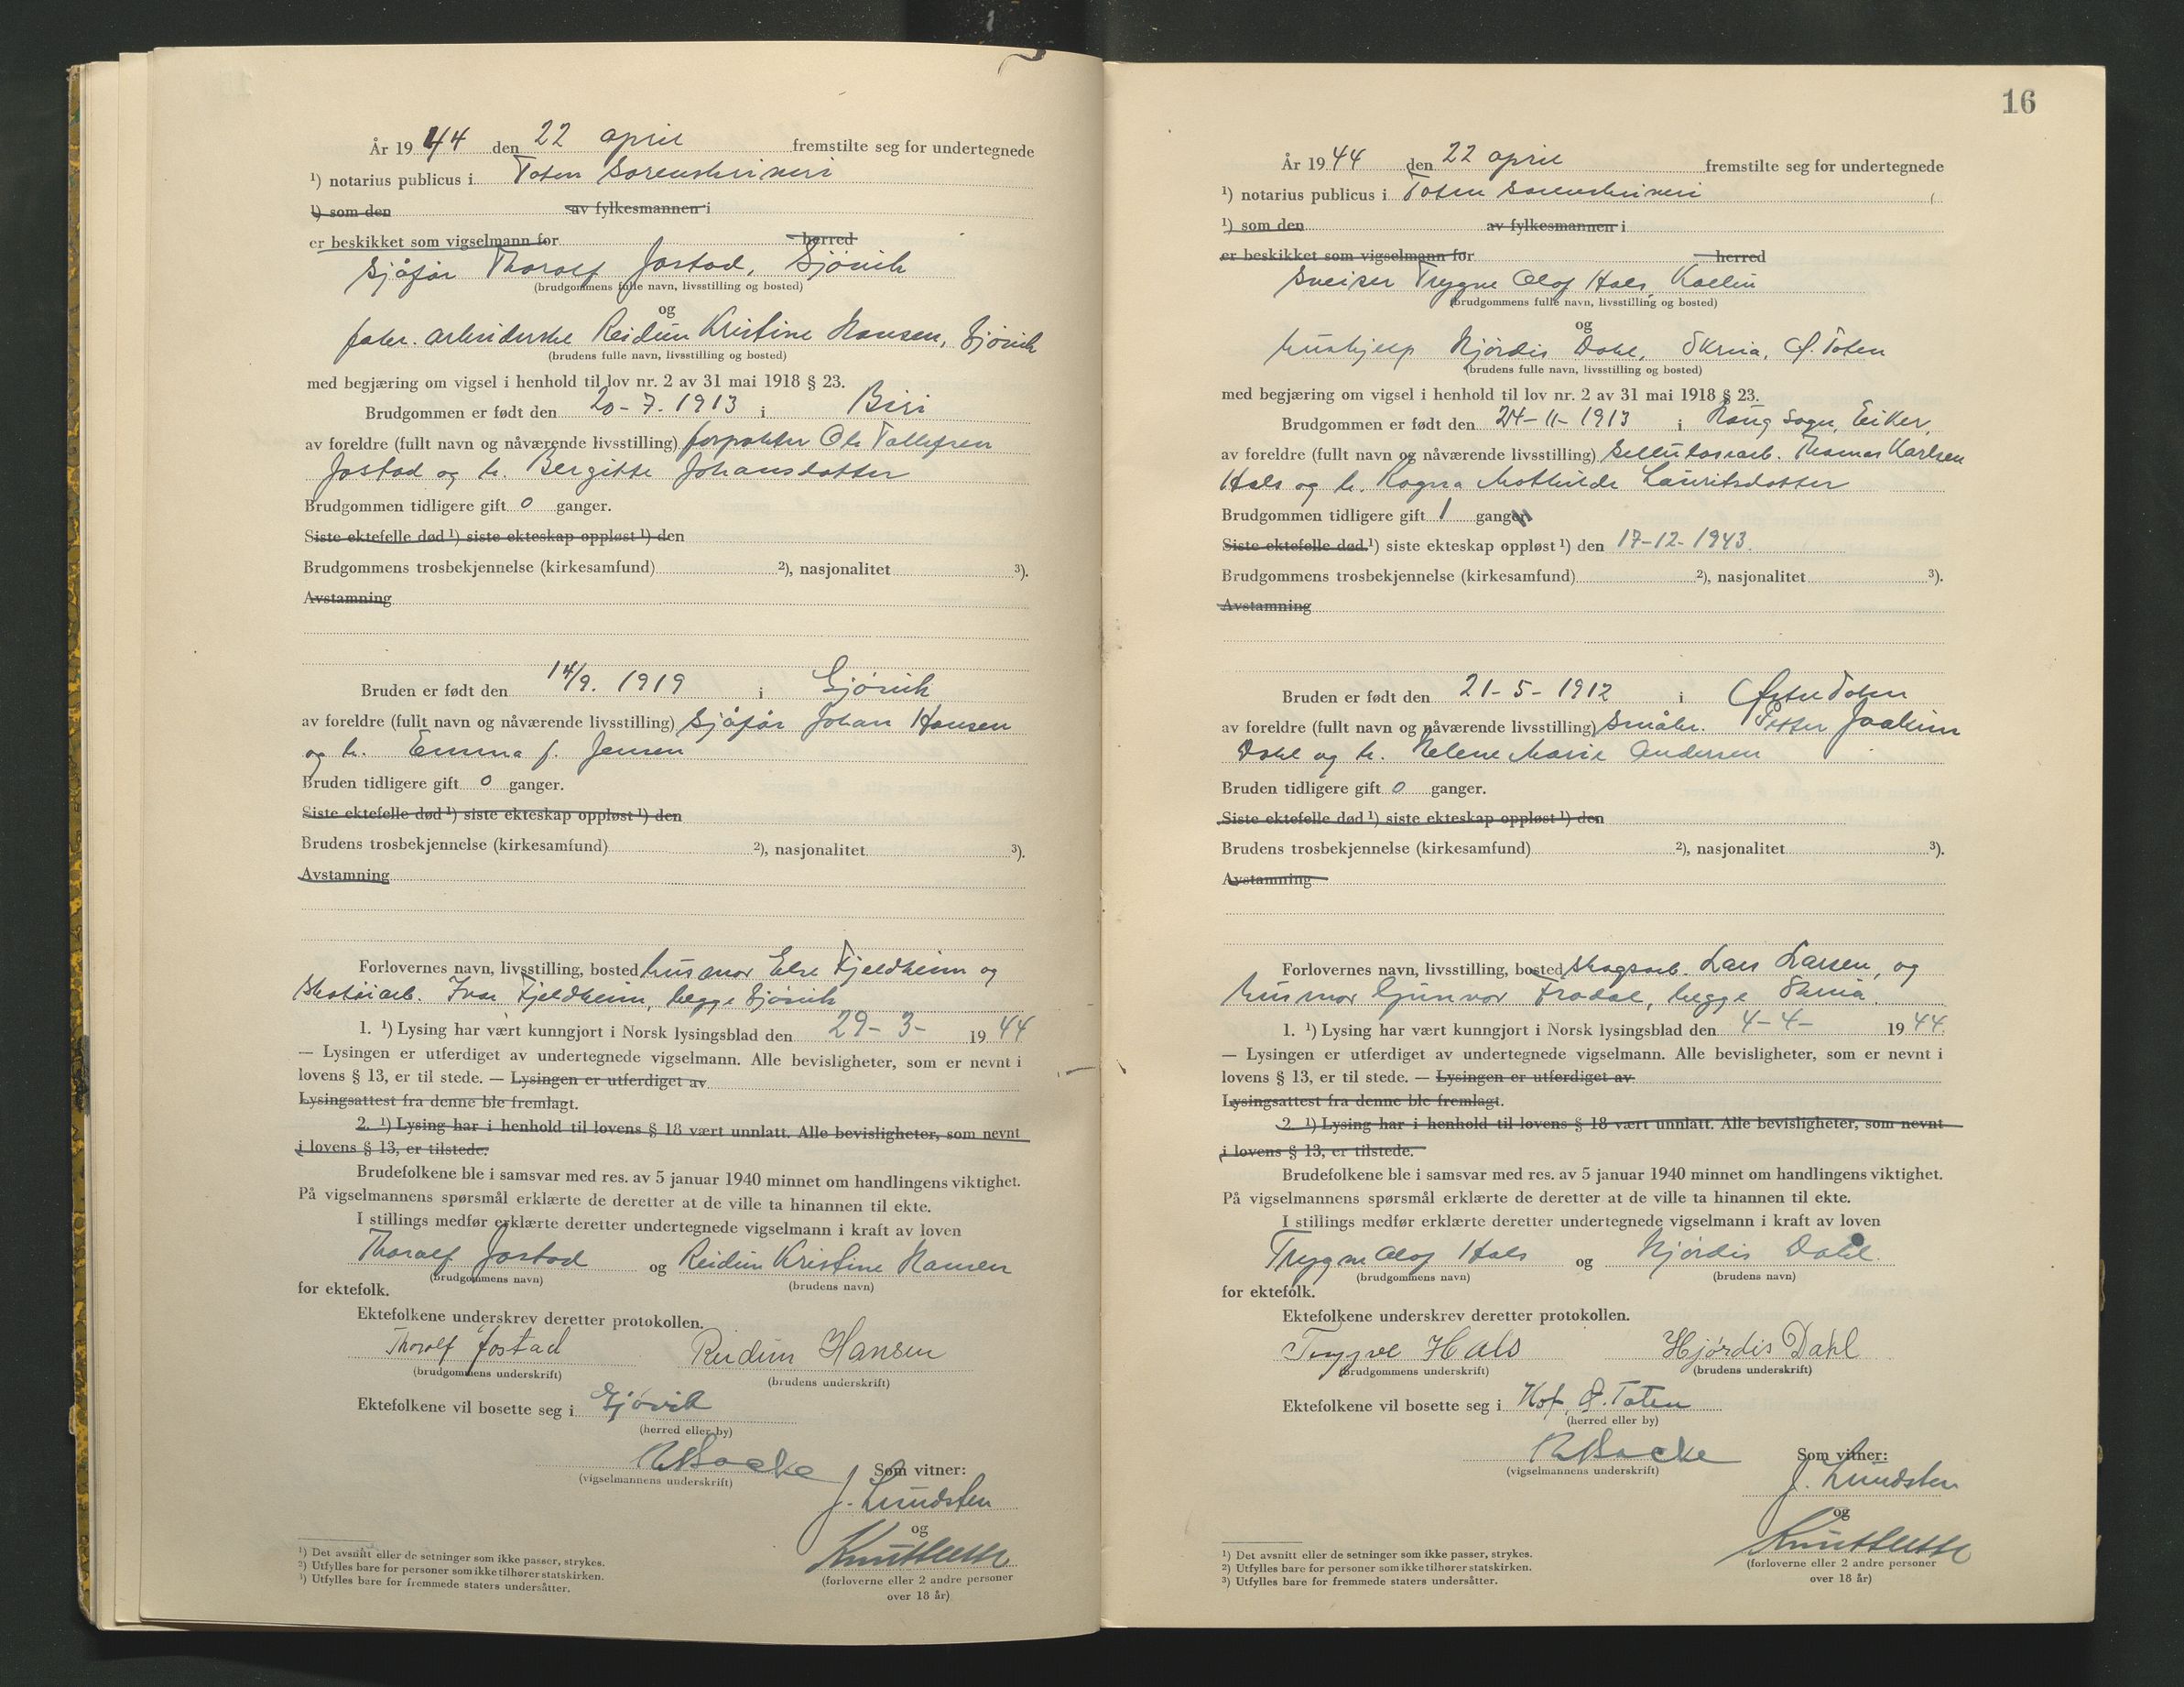 År 1944 den 22 april fremstilte seg for undertegnede
¹) notarius publicus i Toten Sorenskriveri
¹) som den av fylkesmannen i
er beskikket som vigselmann for herred
Sjåfør Thoralf Jostad, Gjøvik
(brudgommens fulle navn, livsstilling og bosted)
og
fabr. arbeiderske Reidun Kristine Hansen, Gjøvik
(brudens fulle navn, livsstilling og bosted)
med begjæring om vigsel i henhold til lov nr. 2 av 31 mai 1918 § 23.
Brudgommen er født den 20-7.1913 i Biri
av foreldre (fullt navn og nåværende livsstilling) forpakter Ole Tollefsen
Jostad og h. Bergitte Johansdatter
Brudgommen tidligere gift 0 ganger.
Siste ektefelle død ¹) siste ekteskap oppløst ¹) den
Brudgommens trosbekjennelse (kirkesamfund) ²), nasjonalitet ³).
Avstamning
Bruden er født den 14/9. 1919 i Gjøvik
av foreldre (fullt navn og nåværende livsstilling) Sjåfør Johan Hansen
og h. Emma f. Jensen
Bruden tidligere gift 0 ganger.
Siste ektefelle død ¹) siste ekteskap oppløst ¹) den
Brudens trosbekjennelse (kirkesamfund) ²), nasjonalitet ³).
Avstamning
Forlovernes navn, livsstilling, bosted husmor Else Fjeldheim og
Skotøiarb. Ivar Fjeldheim, begge Gjøvik
1. ¹) Lysing har vært kunngjort i Norsk lysingsblad den 29-3- 1944
— Lysingen er utferdiget av undertegnede vigselmann. Alle bevisligheter, som er nevnt i
lovens § 13, er til stede. — Lysingen er utferdiget av
Lysingsattest fra denne ble fremlagt.
2. ¹) Lysing har i henhold til lovens § 18 vært unnlatt. Alle bevisligheter, som nevnt
i lovens § 13, er tilstede.
Brudefolkene ble i samsvar med res. av 5 januar 1940 minnet om handlingens viktighet.
På vigselmannens spørsmål erklærte de deretter at de ville ta hinannen til ekte.
I stillings medfør erklærte deretter undertegnede vigselmann i kraft av loven
Thoralf Jostad og Reidun Kristine Hansen
(brudgommens navn) (brudens navn)
for ektefolk.
Ektefolkene underskrev deretter protokollen.
Thoralf Jostad Reidun Hansen
(brudgommens underskrift) (brudens underskrift)
Ektefolkene vil bosette seg i Gjøvik
(herred eller by)
(vigselmannens underskrift) Som vitner:
J. Lundsten
og
(forloverne eller 2 andre personer
over 18 år)
¹) Det avsnitt eller de setninger som ikke passer, strykes.
²) Utfylles bare for personer som ikke tilhører statskirken.
³) Utfylles bare for fremmede staters undersåtter.
16
År 1944 den 22 april fremstilte seg for undertegnede
¹) notarius publicus i Toten Sorenskriveri
¹) som den av fylkesmannen i
er beskikket som vigselmann for herred
Sveiser Trygve Olaf Hals, Kolbu
(brudgommens fulle navn, livsstilling og bosted)
og
hushjelp Hjördis Dahl, Skreia, Ø. Toten
(brudens fulle navn, livsstilling og bosted)
med begjæring om vigsel i henhold til lov nr. 2 av 31 mai 1918 § 23.
Brudgommen er født den 24-11-1913 i Haug sogn, Eiker,
av foreldre (fullt navn og nåværende livsstilling) Sellulosearb. Thomas Karlsen
Hals og h. Ragna Mathilde Lauritsdatter
Brudgommen tidligere gift 1 ganger
Siste ektefelle død.¹) siste ekteskap oppløst ¹) den 17-12-1943.
Brudgommens trosbekjennelse (kirkesamfund) ²), nasjonalitet ³).
Avstamning
Bruden er født den 21-5-1912 i Østre Toten
av foreldre (fullt navn og nåværende livsstilling) Småbr. Petter Joakim
Dahl og h. Helene Marie Andersen
Bruden tidligere gift 0 ganger.
Siste ektefelle død ¹) siste ekteskap oppløst ¹) den
Brudens trosbekjennelse (kirkesamfund) ²), nasjonalitet ³).
Avstamning
Forlovernes navn, livsstilling, bosted Skogsarb. Lars Larsen, og
husmor Gunvor Frodal, begge Skreia.
1. ¹) Lysing har vært kunngjort i Norsk lysingsblad den 4-4- 1944.
— Lysingen er utferdiget av undertegnede vigselmann. Alle bevisligheter, som er nevnt i
lovens § 13, er til stede. — Lysingen er utferdiget av
Lysingsattest fra denne ble fremlagt.
2. ¹) Lysing har i henhold til lovens § 18 vært unnlatt. Alle bevisligheter, som nevnt
i lovens § 13, er tilstede.
Brudefolkene ble i samsvar med res. av 5 januar 1940 minnet om handlingens viktighet.
På vigselmannens spørsmål erklærte de deretter at de ville ta hinannen til ekte.
I stillings medfør erklærte deretter undertegnede vigselmann i kraft av loven
Trygve Olaf Hals og Hjördis Dahl.
(brudgommens navn) (brudens navn)
for ektefolk.
Ektefolkene underskrev deretter protokollen.
Trygve Hals Hjördis Dahl
(brudgommens underskrift) (brudens underskrift)
Ektefolkene vil bosette seg i Hof, Ø. Toten
(herred eller by)
(vigselmannens underskrift) Som vitner:
J. Lundsten
og
(forloverne eller 2 andre personer
over 18 år)
¹) Det avsnitt eller de setninger som ikke passer, strykes.
²) Utfylles bare for personer som ikke tilhører statskirken.
³) Utfylles bare for fremmede staters undersåtter.